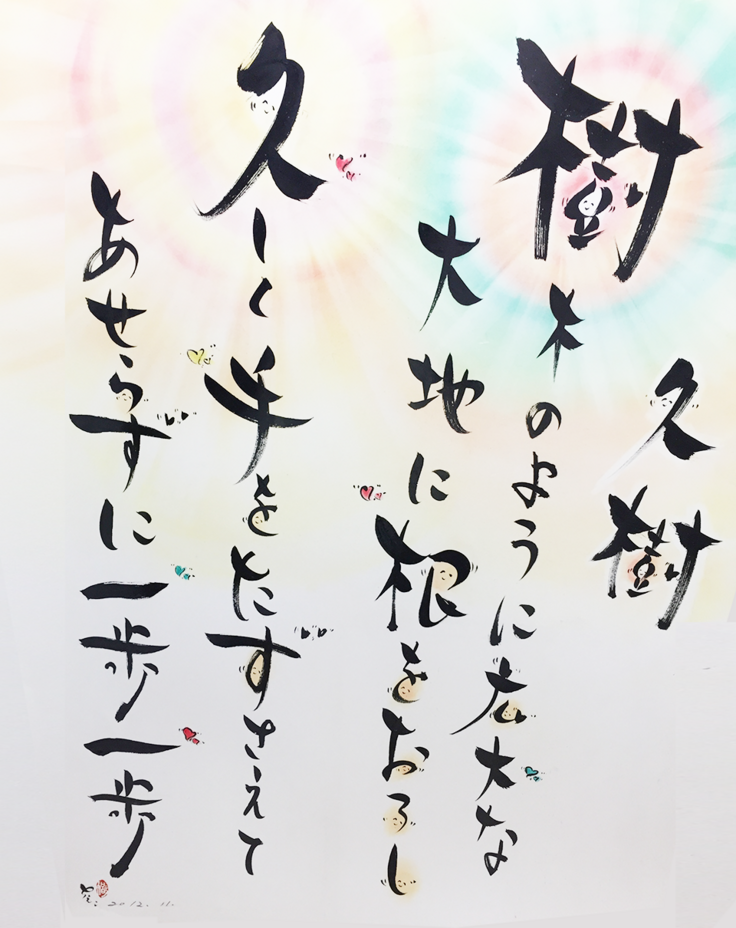 久樹
樹木のように広大な
大地に根をおろし
久しく手をたずさえて
あせらずに一歩一歩
2012. 11.